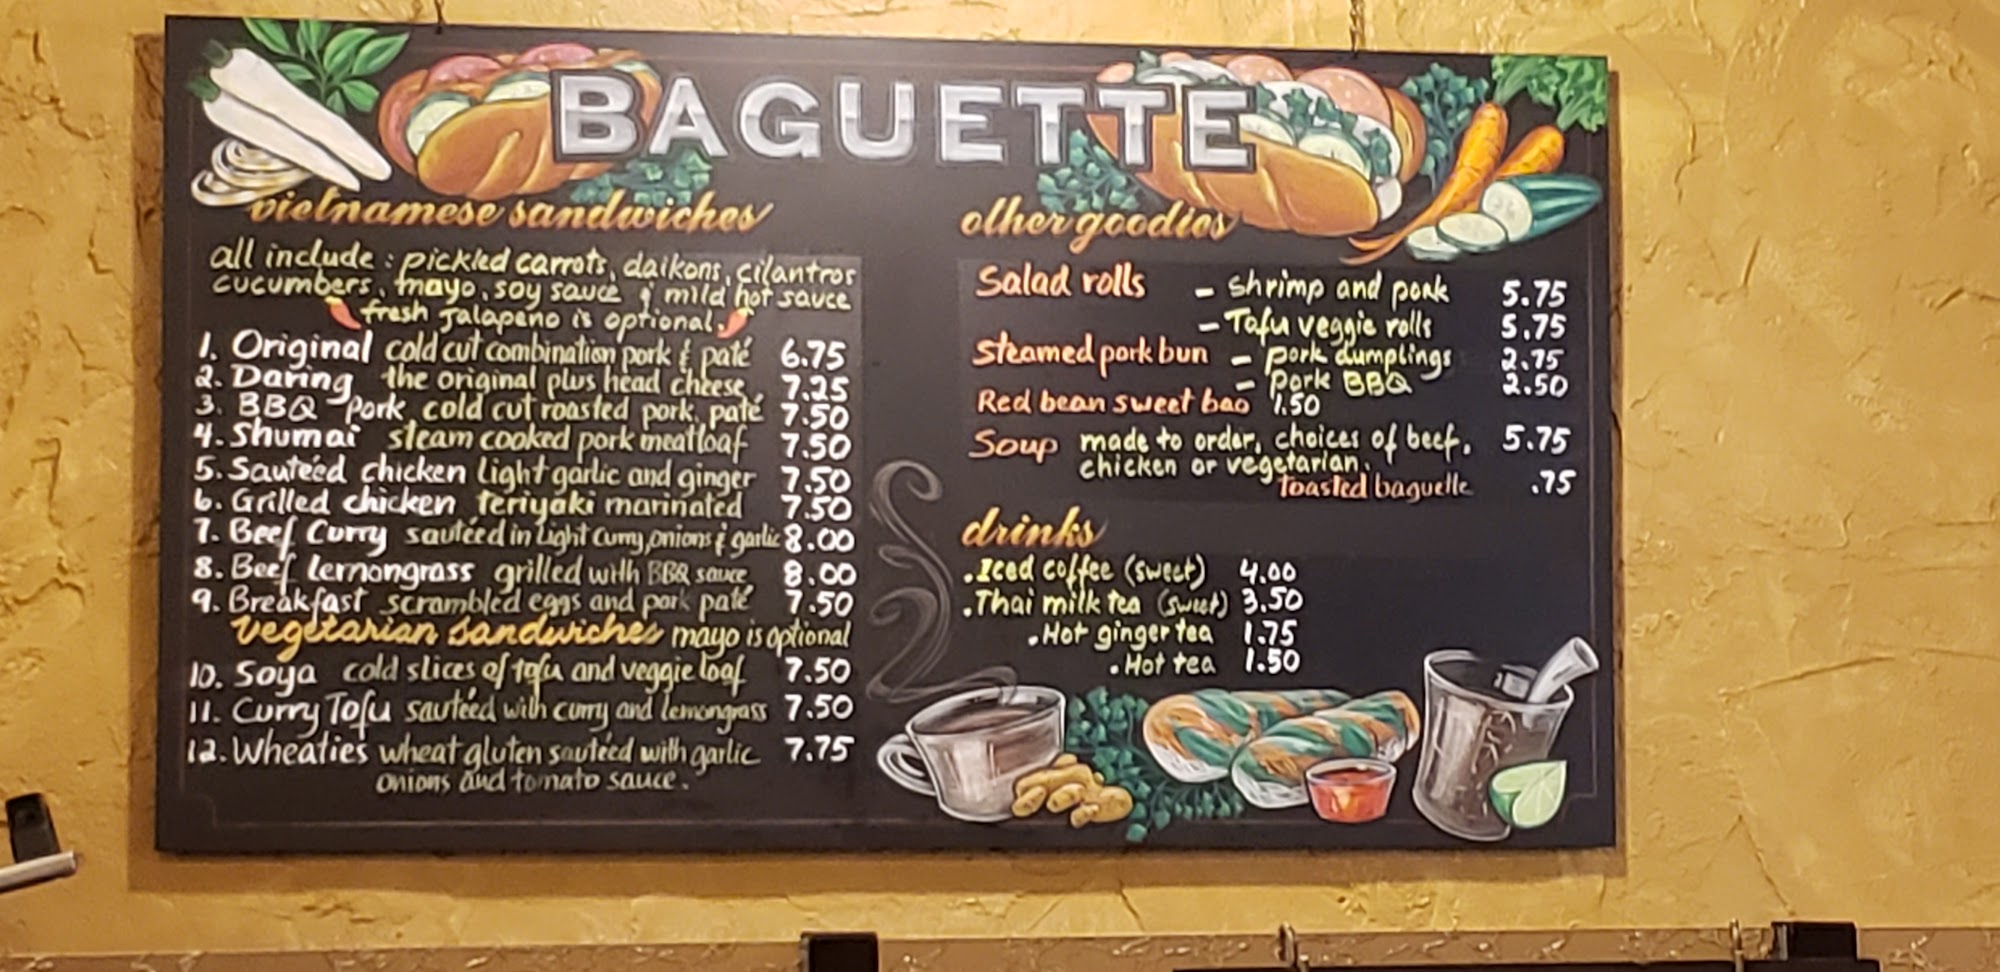 BAGUETTE
vietnamese sandwiches
all include : pickled carrots, daikons, cilantros
cucumbers, mayo, soy sauce & mild hot sauce
fresh jalapeno is optional.
1. Original cold cut combination pork & paté 6.75
2. Daring the original plus head cheese 7.25
3. BBQ Pork cold cut roasted pork, paté 7.50
4. Shumai steam cooked pork meatloaf 7.50
5. Sautéed chicken light garlic and ginger 7.50
6. Grilled chicken teriyaki marinated 7.50
7. Beef Curry sautéed in light curry, onions & garlic 8.00
8. Beef lemongrass grilled with BBQ sauce 8.00
9. Breakfast scrambled eggs and pork paté 7.50
vegetarian sandwiches mayo is optional
10. Soya cold slices of tofu and veggie loaf 7.50
11. Curry Tofu sautéed with curry and lemongrass 7.50
12. Wheaties wheat gluten sautéed with garlic 7.75
onions and tomato sauce.
other goodies
Salad rolls - shrimp and pork 5.75
- Tofu veggie rolls 5.75
Steamed pork bun - pork dumplings 2.75
- Pork BBQ 2.50
Red bean sweet bao 1.50
Soup made to order, choices of beef, 5.75
chicken or vegetarian.
Toasted baguette .75
drinks
. Iced coffee (sweet) 4.00
. Thai milk tea (sweet) 3.50
. Hot ginger tea 1.75
. Hot tea 1.50